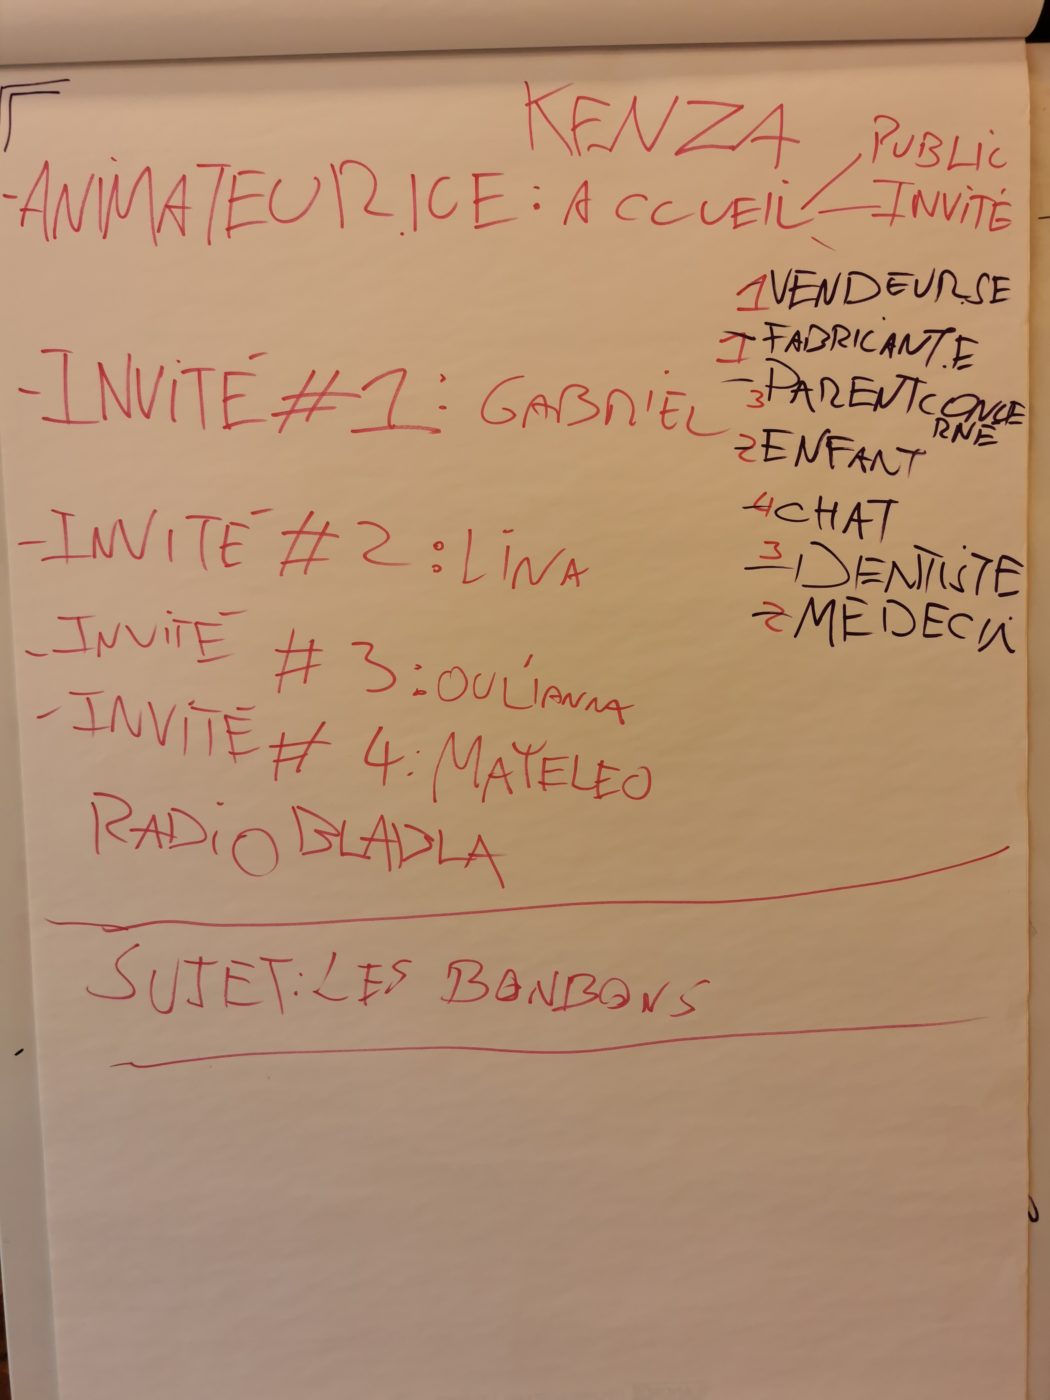 KENZA
-ANIMATEUR.ICE : ACCUEIL
PUBLIC
INVITÉ
1 VENDEUR.SE
1 FABRICANT.E
3 PARENT CONCE
RNÉ
2 ENFANT
4 CHAT
3 DENTISTE
2 MÉDECIN
-INVITÉ #1 : GABRIEL
-INVITÉ #2 : LINA
-INVITÉ #3 : OULIANNA
-INVITÉ #4 : MAYELEO
RADIO BLABLA
SUJET : LES BONBONS